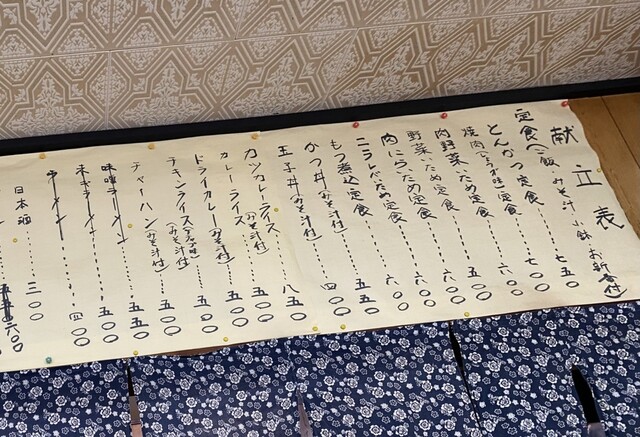 献立表
定食(ご飯・みそ汁・小鉢・お新香付)
とんかつ定食……七五〇
焼肉(しょうが味)定食……七〇〇
肉野菜いため定食……六〇〇
野菜いため定食……五〇〇
肉にらいため定食……六〇〇
ニラレバいため定食……六〇〇
もつ煮込定食……六〇〇
かつ丼(みそ汁付)……五五〇
玉子丼(みそ汁付)……四〇〇
カツカレーライス……八五〇
カレーライス(みそ汁付)……五〇〇
ドライカレー(みそ汁付)……五〇〇
チキンライス(みそ汁付)……五五〇
チャーハン(みそ汁付)……五〇〇
味噌ラーメン……五五〇
……五〇〇
……四〇〇
日本酒……三〇〇
六〇〇